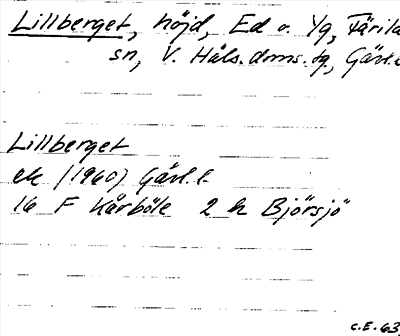 Lillberget, höjd, Ed o. Yg, Färila
sn, V. Häls. dms. tg, Gävl.
Lillberget
ek (1960) Gävl. l.
16 F Kårböle 2 h Björsjö
C.E. 63.